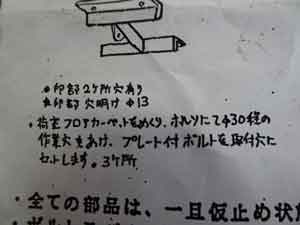 *印部2ケ所穴有り
*印部穴明け φ13
・指定フロアカーペットをめくり、ホルソにてφ30程の
作業穴をあけ、プレート付ボルトを取付穴に
セットします。3ケ所
・全ての部品は、一旦仮止め状態